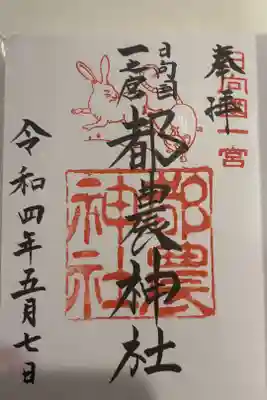 奉拝
日向國一宮
日向国
一之宮
都農神社
都農神社
令和四年五月七日